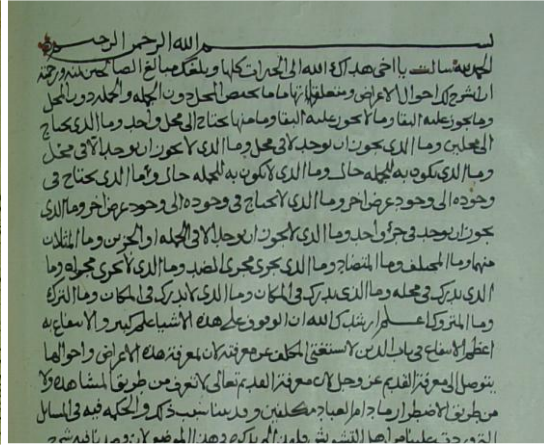 بسم الله الرحمن الرحيم
الحمد لله سالت يا اخى هداك الله الى الخيرات كلها وبلغك مبالغ الصالحين بمنه ورحمته
ان اشرح لك احوال الاعراض ومتعلقاتها وما يختص المحل دون الجمله والجمله دون المحل
وما يجوز عليه البقا وما لا يجوز عليه البقا وما منها يحتاج الى محل واحد وما الذى يحتاج
الى محلين وما الذى يجوز ان يوجد لا فى محل وما الذى لا يجوز ان يوجد الا فى محل
وما الذى يكون به للجمله حال وما الذى لا يكون به للجمله حال وما الذى يحتاج فى
وجوده الى وجود عرض اخر وما الذى لا يحتاج فى وجوده الى وجود عرض اخر وما الذى
يجوز ان يوجد فى جزو واحد وما الذى لا يجوز ان يوجد الا فى الجمله او الجزين وما المثلان
منها وما المختلف وما المتضاد وما الذى يجرى مجرى الضد وما الذى لا يجرى مجراه وما
الذى يدرك فى محله وما الذى يدرك فى المكان وما الذى لا يدرك فى المكان وما الترك
وما المتروك اعلم ارشدك الله ان الوقوف على هذه الاشيا علم كبير والانتفاع به
اعظم الانتفاع فى باب الدين لا يستغنى المكلف عن معرفته لان بمعرفة هذه الاعراض واحوالها
يتوصل الى معرفة القديم عز وجل لان معرفة القديم تعالى لا تعرف من طريق المشاهده ولا
من طريق الاضطرار ما دام العباد مكلفين وقد بينا سبب ذلك والحكمه فيه فى المسايل